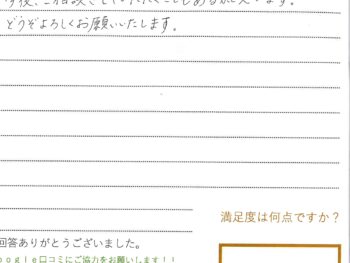 今後、ご相談させていただくこともあるかと思います。
どうぞよろしくお願いいたします。
満足度は何点ですか?
回答ありがとうございました。
oogle口コミにご協力をお願いします!!